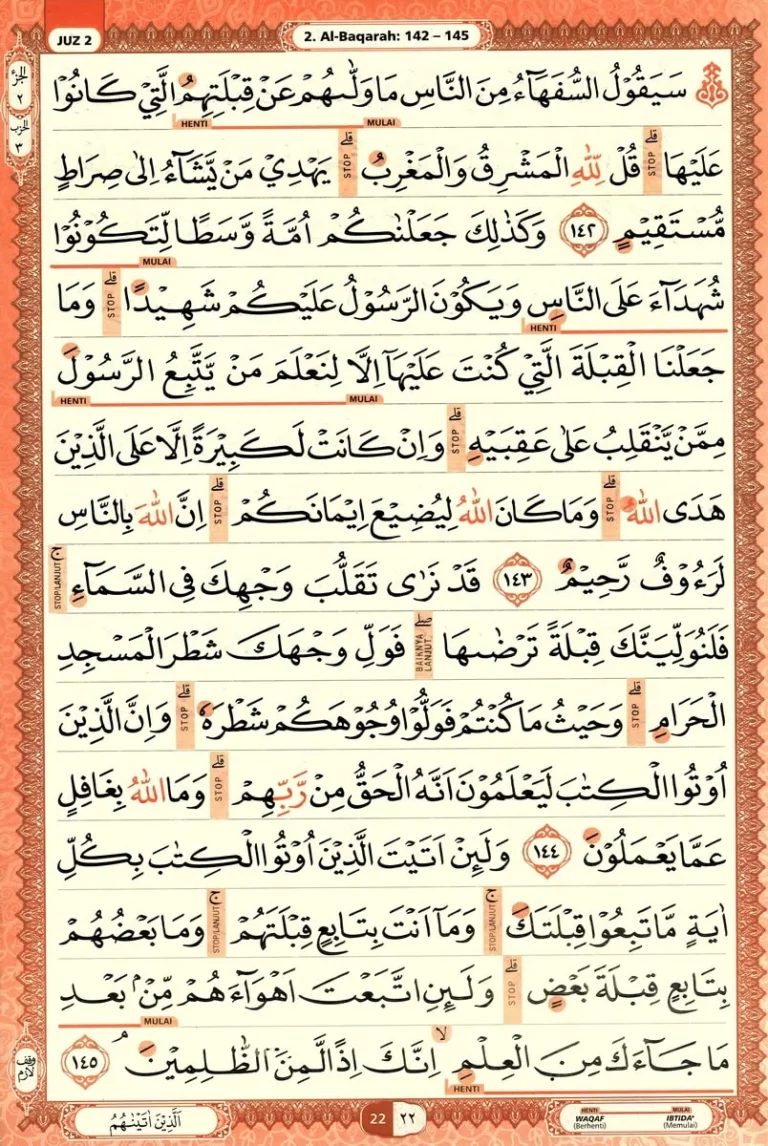 JUZ 2
2. Al-Baqarah: 142 – 145
الجزء ٢
الحزب ٣
سَيَقُوْلُ السُّفَهَاۤءُ مِنَ النَّاسِ مَا وَلّٰىهُمْ عَنْ قِبْلَتِهِمُ الَّتِيْ كَانُوْا
HENTI MULAI
عَلَيْهَا ۗ قُلْ لِّلّٰهِ الْمَشْرِقُ وَالْمَغْرِبُ ۗ يَهْدِيْ مَنْ يَّشَاۤءُ اِلٰى صِرَاطٍ
STOP STOP
مُّسْتَقِيْمٍ ١٤٢ وَكَذٰلِكَ جَعَلْنٰكُمْ اُمَّةً وَّسَطًا لِّتَكُوْنُوْا
MULAI
شُهَدَاۤءَ عَلَى النَّاسِ وَيَكُوْنَ الرَّسُوْلُ عَلَيْكُمْ شَهِيْدًا ۗ وَمَا
HENTI STOP
جَعَلْنَا الْقِبْلَةَ الَّتِيْ كُنْتَ عَلَيْهَآ اِلَّا لِنَعْلَمَ مَنْ يَّتَّبِعُ الرَّسُوْلَ
HENTI MULAI
مِمَّنْ يَّنْقَلِبُ عَلٰى عَقِبَيْهِ ۗ وَاِنْ كَانَتْ لَكَبِيْرَةً اِلَّا عَلَى الَّذِيْنَ
STOP
هَدَى اللّٰهُ ۗ وَمَا كَانَ اللّٰهُ لِيُضِيْعَ اِيْمَانَكُمْ ۗ اِنَّ اللّٰهَ بِالنَّاسِ
STOP STOP
لَرَءُوْفٌ رَّحِيْمٌ ١٤٣ قَدْ نَرٰى تَقَلُّبَ وَجْهِكَ فِى السَّمَاۤءِ ۚ
STOP/LANJUT
فَلَنُوَلِّيَنَّكَ قِبْلَةً تَرْضٰىهَا ۖ فَوَلِّ وَجْهَكَ شَطْرَ الْمَسْجِدِ
BAIKNYA LANJUT
الْحَرَامِ ۗ وَحَيْثُ مَا كُنْتُمْ فَوَلُّوْا وُجُوْهَكُمْ شَطْرَهٗ ۗ وَاِنَّ الَّذِيْنَ
STOP STOP
اُوْتُوا الْكِتٰبَ لَيَعْلَمُوْنَ اَنَّهُ الْحَقُّ مِنْ رَّبِّهِمْ ۗ وَمَا اللّٰهُ بِغَافِلٍ
STOP
عَمَّا يَعْمَلُوْنَ ١٤٤ وَلَىِٕنْ اَتَيْتَ الَّذِيْنَ اُوْتُوا الْكِتٰبَ بِكُلِّ
اٰيَةٍ مَّا تَبِعُوْا قِبْلَتَكَ ۚ وَمَآ اَنْتَ بِتَابِعٍ قِبْلَتَهُمْ ۚ وَمَا بَعْضُهُمْ
STOP/LANJUT STOP/LANJUT
بِتَابِعٍ قِبْلَةَ بَعْضٍ ۗ وَلَىِٕنِ اتَّبَعْتَ اَهْوَاۤءَهُمْ مِّنْۢ بَعْدِ
STOP MULAI
مَا جَاۤءَكَ مِنَ الْعِلْمِ ۙ اِنَّكَ اِذًا لَّمِنَ الظّٰلِمِيْنَ ۘ ١٤٥
HENTI
وقف لازم
اَلَّذِيْنَ اٰتَيْنٰهُمُ
22 ٢٢
HENTI MULAI
WAQAF (Berhenti) IBTIDA' (Memulai)